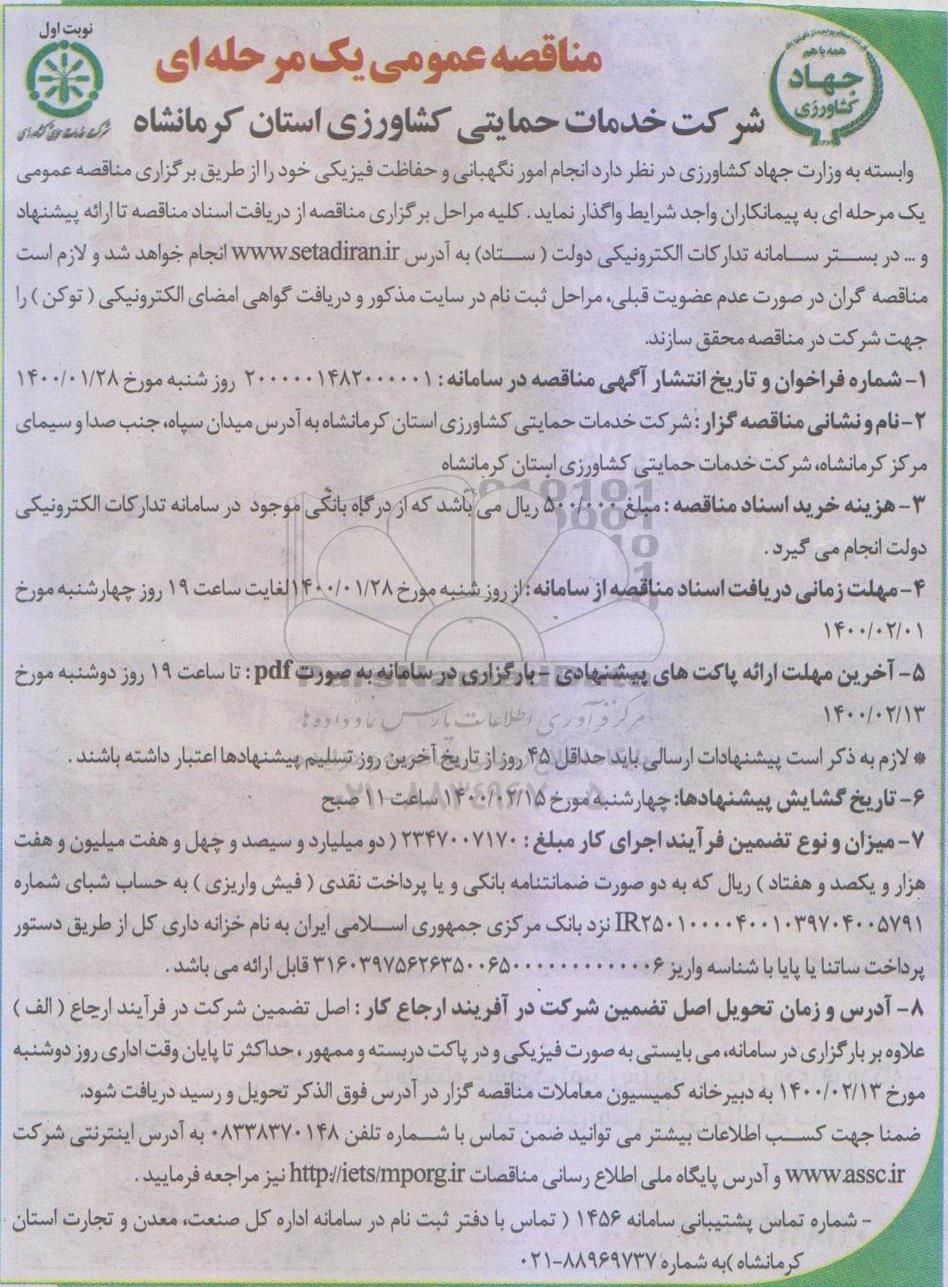 نوبت اول
همه با هم
جهاد
کشاورزی
مناقصه عمومی یک مرحله ای
شرکت خدمات حمایتی کشاورزی استان کرمانشاه
وابسته به وزارت جهاد کشاورزی در نظر دارد انجام امور نگهبانی و حفاظت فیزیکی خود را از طریق برگزاری مناقصه عمومی
یک مرحله ای به پیمانکاران واجد شرایط واگذار نماید . کلیه مراحل برگزاری مناقصه از دریافت اسناد مناقصه تا ارائه پیشنهاد
و ... در بستر سامانه تدارکات الکترونیکی دولت ( ستاد) به آدرس www.setadiran.ir انجام خواهد شد و لازم است
مناقصه گران در صورت عدم عضویت قبلی، مراحل ثبت نام در سایت مذکور و دریافت گواهی امضای الکترونیکی ( توکن ) را
جهت شرکت در مناقصه محقق سازند.
۱- شماره فراخوان و تاریخ انتشار آگهی مناقصه در سامانه : ۲۰۰۰۰۰۱۴۸۲۰۰۰۰۰۱ روز شنبه مورخ ۱۴۰۰/۰۱/۲۸
۲- نام و نشانی مناقصه گزار : شرکت خدمات حمایتی کشاورزی استان کرمانشاه به آدرس میدان سپاه، جنب صدا و سیمای
مرکز کرمانشاه، شرکت خدمات حمایتی کشاورزی استان کرمانشاه
۳- هزینه خرید اسناد مناقصه : مبلغ ۵۰۰/۰۰۰ ریال می باشد که از درگاه بانکی موجود در سامانه تدارکات الکترونیکی
دولت انجام می گیرد .
۴- مهلت زمانی دریافت اسناد مناقصه از سامانه : از روز شنبه مورخ ۱۴۰۰/۰۱/۲۸لغایت ساعت ۱۹ روز چهارشنبه مورخ
۱۴۰۰/۰۲/۰۱
۵- آخرین مهلت ارائه پاکت های پیشنهادی - بارگزاری در سامانه به صورت pdf : تا ساعت ۱۹ روز دوشنبه مورخ
۱۴۰۰/۰۲/۱۳
* لازم به ذکر است پیشنهادات ارسالی باید حداقل ۴۵ روز از تاریخ آخرین روز تسلیم پیشنهادها اعتبار داشته باشند .
۶- تاریخ گشایش پیشنهادها: چهارشنبه مورخ ۱۴۰۰/۰۲/۱۵ ساعت ۱۱ صبح
۷- میزان و نوع تضمین فرآیند اجرای کار مبلغ : ۲۳۴۷۰۰۷۱۷۰ ( دو میلیارد و سیصد و چهل و هفت میلیون و هفت
هزار و یکصد و هفتاد ) ریال که به دو صورت ضمانتنامه بانکی و یا پرداخت نقدی ( فیش واریزی ) به حساب شبای شماره
IR۲۵۰۱۰۰۰۰۴۰۰۱۰۳۹۷۰۴۰۰۵۷۹۱ نزد بانک مرکزی جمهوری اسلامی ایران به نام خزانه داری کل از طریق دستور
پرداخت ساتنا یا پایا با شناسه واریز ۳۱۶۰۳۹۷۵۶۲۶۳۵۰۰۶۵۰۰۰۰۰۰۰۰۰۰۰۰۰۶ قابل ارائه می باشد .
۸- آدرس و زمان تحویل اصل تضمین شرکت در آفریند ارجاع کار : اصل تضمین شرکت در فرآیند ارجاع ( الف )
علاوه بر بارگزاری در سامانه، می بایستی به صورت فیزیکی و در پاکت دربسته و ممهور ، حداکثر تا پایان وقت اداری روز دوشنبه
مورخ ۱۴۰۰/۰۲/۱۳ به دبیرخانه کمیسیون معاملات مناقصه گزار در آدرس فوق الذکر تحویل و رسید دریافت شود.
ضمنا جهت کسب اطلاعات بیشتر می توانید ضمن تماس با شماره تلفن ۰۸۳۳۸۳۷۰۱۴۸ به آدرس اینترنتی شرکت
www.assc.ir و آدرس پایگاه ملی اطلاع رسانی مناقصات http://iets/mporg.ir نیز مراجعه فرمایید .
- شماره تماس پشتیبانی سامانه ۱۴۵۶ ( تماس با دفتر ثبت نام در سامانه اداره کل صنعت، معدن و تجارت استان
کرمانشاه )به شماره ۸۸۹۶۹۷۳۷-۰۲۱